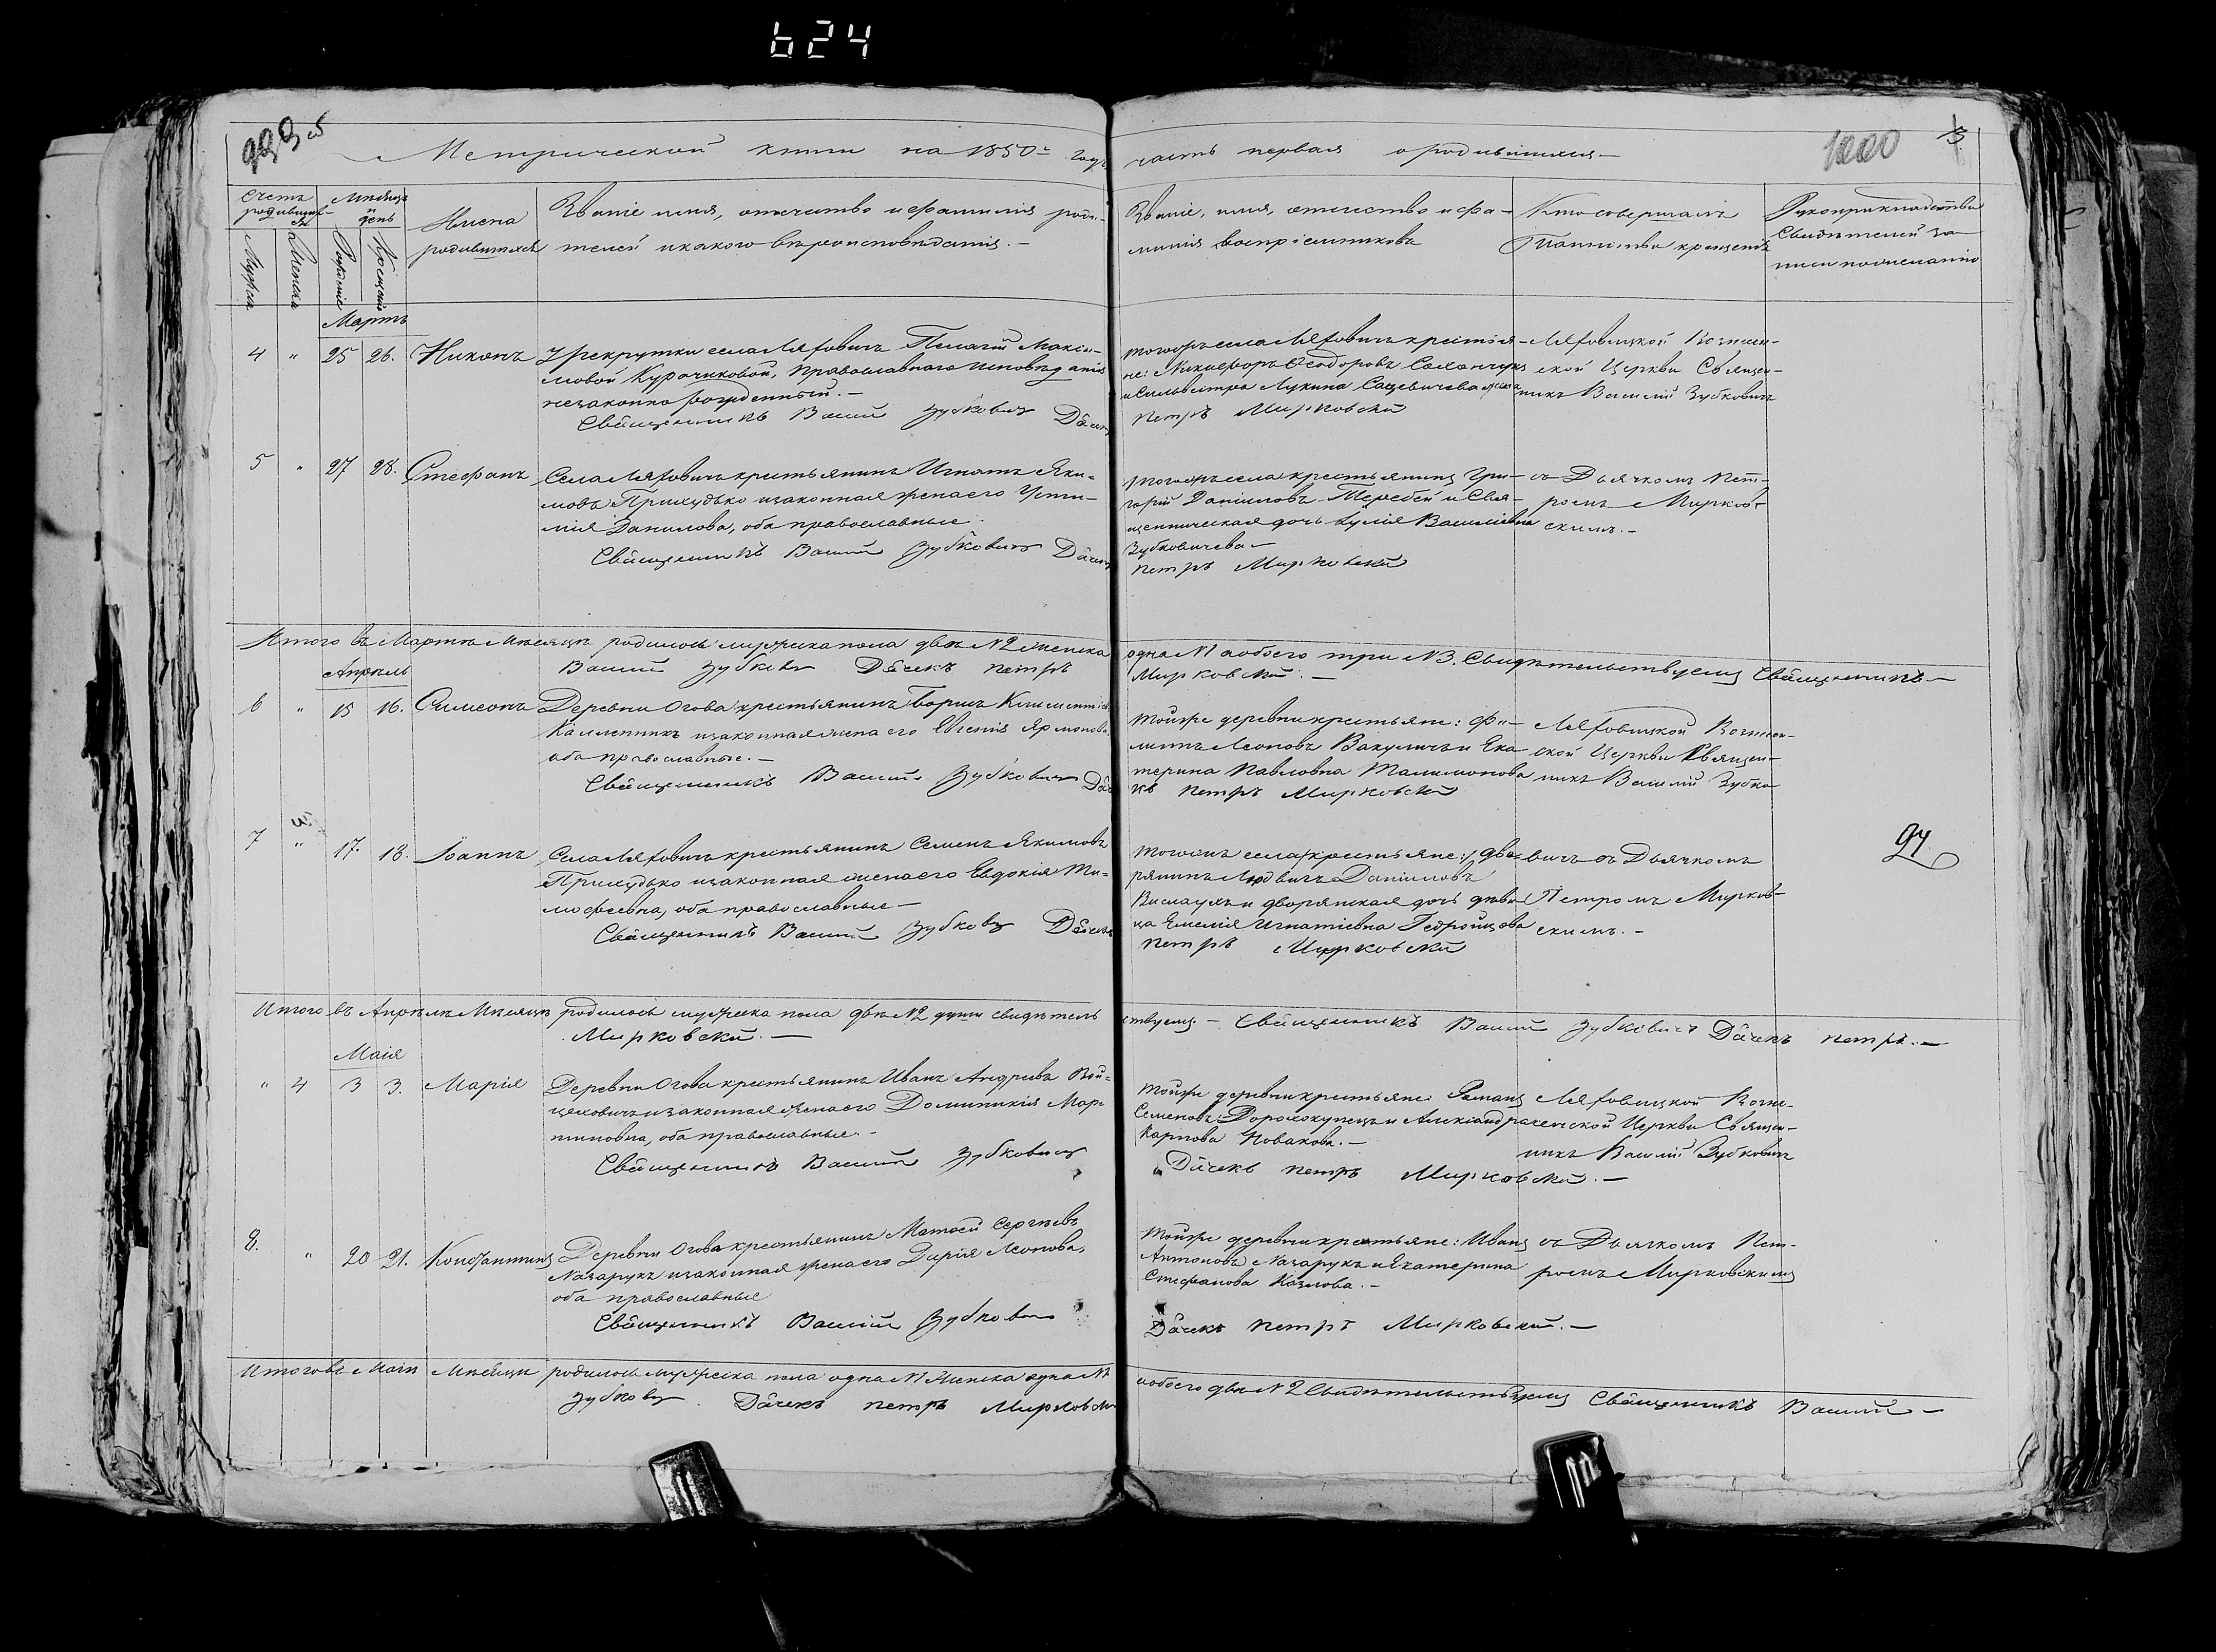 624
999 об
1000
5
Метрической книги на 1850й годъ часть первая о родившихся —
Счетъ родившихся
Мѣсяцъ и день
Имена
родившихся
Званіе имя, отчество и фамилія роди-
телей и какого вѣроисповѣданія. —
Званіе, имя, отчество и фа-
милія воспріемниковъ
Кто совершалъ
Таинство крещенія
Рукоприкладство
Свидѣтелей за-
писи по желанію
Мужеска
Женска
Рожденіе
Крещенія
Мартъ
4 " 25 26. Никонъ
У рекрутки села Ляховичъ Пелагіи Макси-
мовой Курочиковой, православнаго исповѣданія
незаконно рожденный. —
Священникъ Василій Зубковичъ Дьячекъ
тогожъ села Ляховичъ крестья-
не: Никифоръ Ѳеодоровъ
и Сильвестра Лукина Сацевичева жена
Петръ Мирковскій
Ляховицкой Вознесен-
ской Церкви Священ-
никъ Василій Зубковичъ
5 " 27 28. Стефанъ
Села Ляховичъ крестьянинъ Игнатъ Яки-
мовъ Прихудько и законная жена его Усти-
мія Данилова, оба православные.
Священникъ Василій Зубковичъ Дьячекъ
тогожъ села крестьянинъ Гри-
горій Даніиловъ Теребей и Свя-
щенническая дочь Юлія Васильевна
Зубковичева —
Петръ Мирковскій
съ Дьячкомъ Пет-
ромъ Мирков-
скимъ. —
Итого въ Мартѣ Мѣсяцѣ родилось мужеска пола двѣ №2 женска одна №1 а обоего три №3. Свидѣтельствуемъ Священникъ —
Василій Зубковичъ Дьячекъ Петръ Мирковскій. —
Апрѣль
6 " 15 16. Симеонъ
Деревни Огова крестьянинъ Борисъ Климентіевъ
Калленикъ и законная жена его Евгенія Ярмонова,
оба православные. —
Священникъ Василій Зубковичъ Дьяче
тойже деревни крестьяне: Фи-
липъ Леоновъ Вакуличъ и Ека-
терина Павловна Талимонова
къ Петръ Мирковскій
Ляховицкой Вознесен-
ской Церкви Священ-
никъ Василій Зубко-
3
7 " 17. 18. Іоаннъ
Села Ляховичъ крестьянинъ Семенъ Якимовъ
Прихудько и законная жена его Евдокія Ти-
мофеевна, оба православные —
Священникъ Василій Зубковичъ Дьячекъ
тогожъ села крестьяне: дво-
рянинъ Людвигъ Даніиловъ
и дворянская дочь дѣви-
ца Емелія Игнатіевна
Петръ Мирковскій
вичъ съ Дьячкомъ
Петромъ Мирков-
скимъ. —
94
Итого въ Апрѣлѣ Мѣсяцѣ родилось мужеска пола двѣ №2 души свидѣтельствуемъ. — Священникъ Василій Зубковичъ Дьячекъ Петръ. —
Мирковскій. —
Маія
" 4 3 3. Марія
Деревни Огова крестьянинъ Иванъ Андреевъ Вой-
цеховичъ и законная жена его Доминикія Мар-
тиновна, оба православные. —
Священникъ Василій Зубковичъ
тойже деревни крестьяне: Романъ
Семеновъ Дорожокупецъ и Александра
Карпова Новакова. —
Дьячекъ Петръ Мирковскій. —
Ляховицкой Возне-
сенской Церкви Священ-
никъ Василій Зубковичъ
8. " 20 21. Константинъ
Деревни Огова крестьянинъ Матѳей Сергѣевъ
Назарукъ и законная жена его Дарія Леонова,
оба православные
Священникъ Василій Зубковичъ
тойже деревни крестьяне: Иванъ
Антоновъ Назарукъ и Екатерина
Стефанова Козлова. —
Дьячекъ Петръ Мирковскій. —
съ Дьячкомъ Пет-
ромъ Мирковскимъ
Итого въ Маіи Мѣсяцѣ родилось мужеска пола одна №1 женска одна №1 и обоего двѣ №2 Свидѣтельствуемъ Священникъ Василій —
Зубковичъ Дьячекъ Петръ Мирковскій